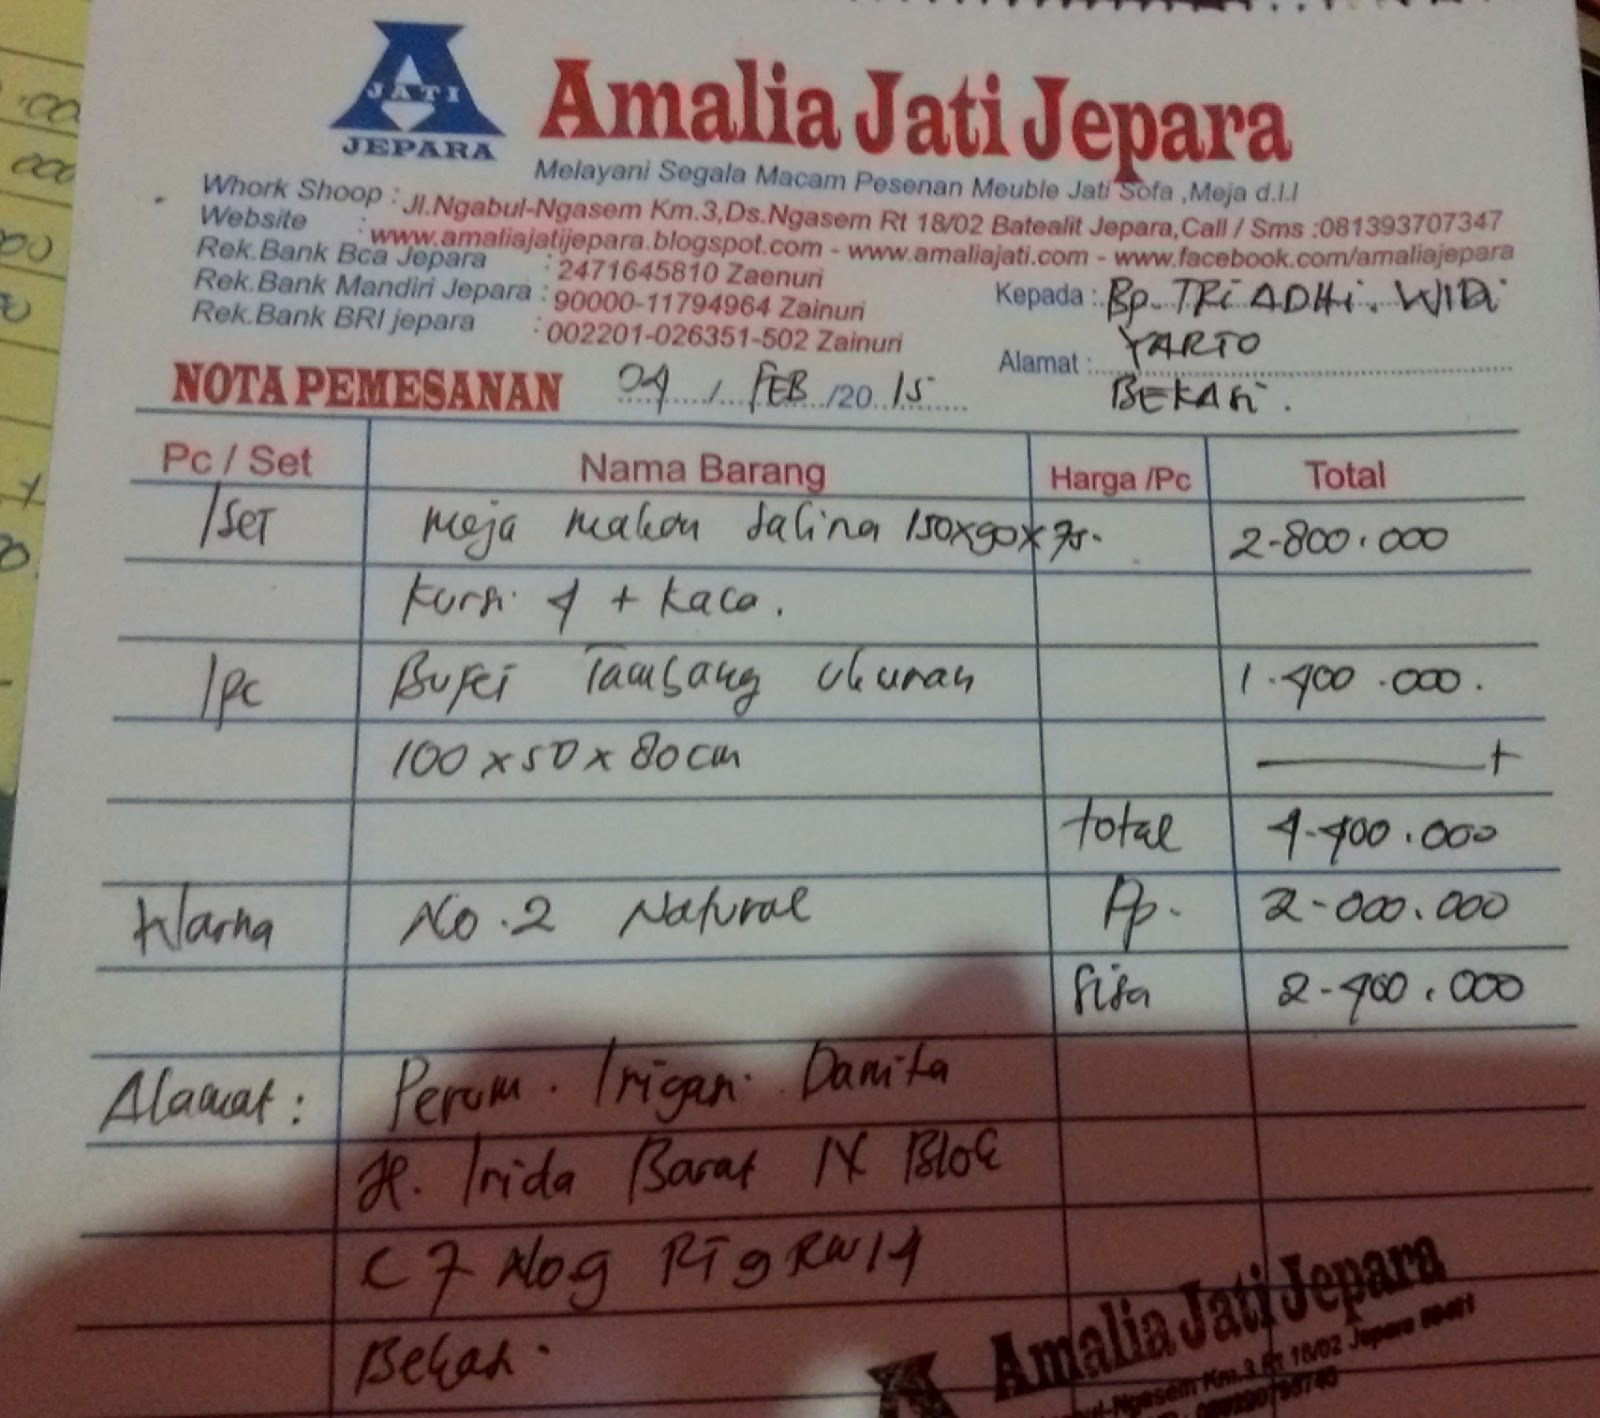 JATI
JEPARA
Amalia Jati Jepara
Melayani Segala Macam Pesenan Meuble Jati Sofa ,Meja d.l.l
Whork Shoop : Jl.Ngabul-Ngasem Km.3,Ds.Ngasem Rt 18/02 Batealit Jepara,Call / Sms :081393707347
Website : www.amaliajatijepara.blogspot.com - www.amaliajati.com - www.facebook.com/amaliajepara
Rek.Bank Bca Jepara : 2471645810 Zaenuri
Rek.Bank Mandiri Jepara : 90000-11794964 Zainuri
Rek.Bank BRI jepara : 002201-026351-502 Zainuri
Kepada : Bp. TRi ADHi. WIDi
YARTO
Alamat :
BEKASi.
NOTA PEMESANAN 04 / FEB /20 15
Pc / Set Nama Barang Harga /Pc Total
1 SET Meja makan salina 150x90x75- 2-800.000
Kursi 4 + Kaca.
1 pc Bufet Tambang Ukuran 1.400.000.
100 x 50 x 80 cm +
total 4-400.000
Warna No.2 Natural Dp. 2-000.000
Sisa 2-400.000
Alamat : Perum. Irigasi Danita
Jl. Irida Barat IX Blok
C 7 No.9 RT 9 RW 14
Bekasi.
Amalia Jati Jepara
Km.3 Rt 18/02 Jepara